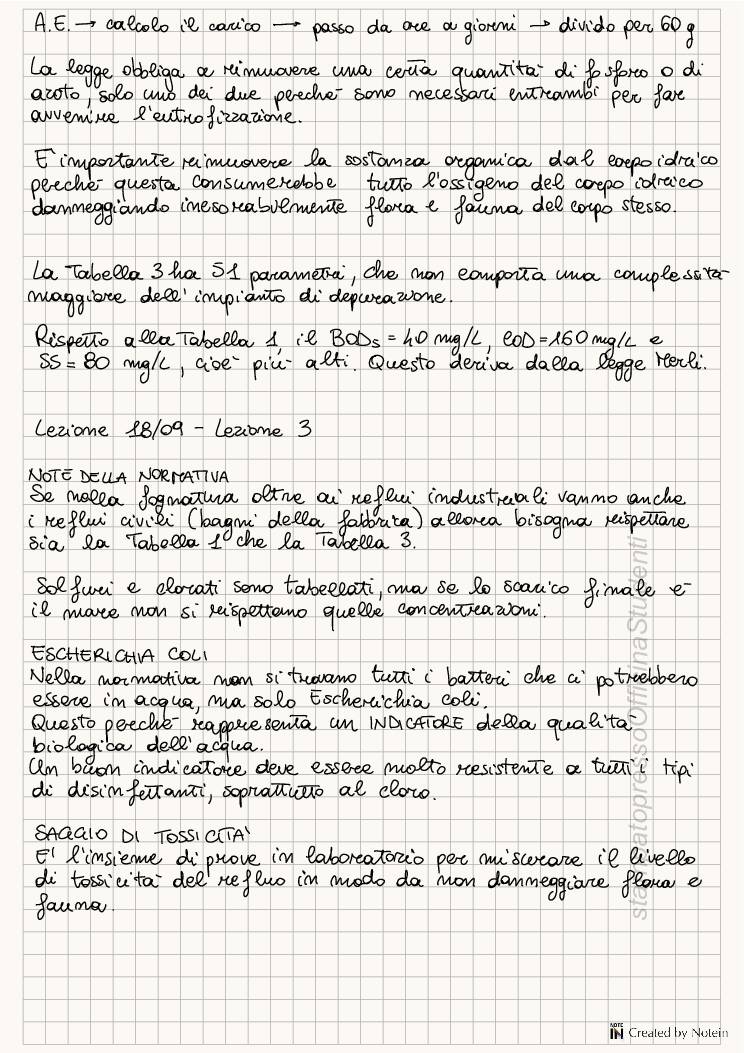 A.E. → calcolo il carico → passo da ore a giorni → divido per 60 g
La legge obbliga a rimuovere una certa quantità di fosforo o di
azoto, solo uno dei due perché sono necessari entrambi per far
avvenire l'eutrofizzazione.
E' importante rimuovere la sostanza organica dal corpo idrico
perché questa consumerebbe tutto l'ossigeno del corpo idrico
danneggiando inesorabilmente flora e fauna del corpo stesso.
La Tabella 3 ha 51 parametri, che non comporta una complessità
maggiore dell'impianto di depurazione.
Rispetto alla Tabella 1, il BOD5 = 40 mg/L, COD = 160 mg/L e
SS = 80 mg/L, cioè più alti. Questo deriva dalla legge Merli.
Lezione 18/09 - Lezione 3
NOTE DELLA NORMATIVA
Se nella fognatura oltre ai reflui industriali vanno anche
i reflui civili (bagni della fabbrica) allora bisogna rispettare
sia la Tabella 1 che la Tabella 3.
Solfuri e clorati sono tabellati, ma se lo scarico finale è
il mare non si rispettano quelle concentrazioni.
ESCHERICHIA COLI
Nella normativa non si trovano tutti i batteri che ci potrebbero
essere in acqua, ma solo Escherichia coli.
Questo perché rappresenta un INDICATORE della qualità
biologica dell'acqua.
Un buon indicatore deve essere molto resistente a tutti i tipi
di disinfettanti, soprattutto al cloro.
SAGGIO DI TOSSICITA'
E' l'insieme di prove in laboratorio per misurare il livello
di tossicità del refluo in modo da non danneggiare flora e
fauna.
stampatopressoOfficinaStudenti
NOTE IN Created by Notein